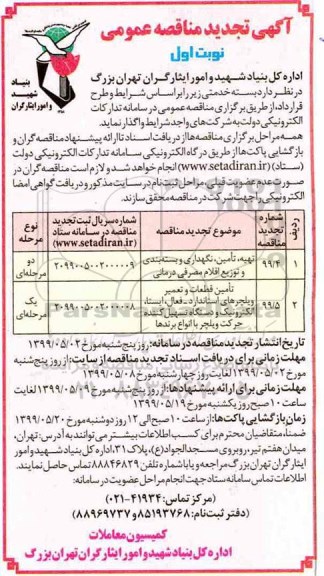 آگهی تجدید مناقصه عمومی
نوبت اول
بنیاد
شهید
و امور ایثارگران
اداره کل بنیاد شهید و امور ایثارگران تهران بزرگ
در نظر دارد بسته خدمتی زیر را بر اساس شرایط و طرح
قرارداد، از طریق برگزاری مناقصه عمومی در سامانه تدارکات
الکترونیکی دولت به شرکت‌های واجد شرایط واگذار نماید.
همه مراحل برگزاری مناقصه‌ها از دریافت اسناد تا ارائه پیشنهاد مناقصه‌گران و
بازگشایی پاکت‌ها از طریق درگاه الکترونیکی سامانه تدارکات الکترونیکی دولت
(ستاد) (www.setadiran.ir) انجام خواهد شد و لازم است مناقصه‌گران در
صورت عدم عضویت قبلی، مراحل ثبت‌نام در سایت مذکور و دریافت گواهی امضا
الکترونیکی را جهت شرکت در مناقصه محقق سازند.
ردیف شماره تجدید مناقصه موضوع تجدید مناقصه شماره سریال ثبت تجدید مناقصه در سامانه ستاد (www.setadiran.ir) نوع مرحله
۱ ۹۹/۴ تهیه، تأمین، نگهداری و بسته‌بندی و توزیع اقلام مصرفی درمانی ۲۰۹۹۰۰۵۰۰۲۰۰۰۰۰۹ دو مرحله‌ای
۲ ۹۹/۵ تأمین قطعات و تعمیر ویلچرهای استاندارد، فعال، ایستا، الکترونیک و دستگاه تسهیل کننده حرکت ویلچر با انواع برندها ۲۰۹۹۰۰۵۰۰۲۰۰۰۰۰۸ یک مرحله‌ای
تاریخ انتشار تجدید مناقصه در سامانه: روز پنج‌شنبه مورخ ۱۳۹۹/۰۵/۰۲
مهلت زمانی برای دریافت اسناد تجدید مناقصه از سایت: از روز پنج‌شنبه
مورخ ۱۳۹۹/۰۵/۰۲ لغایت روز چهارشنبه مورخ ۱۳۹۹/۰۵/۰۸
مهلت زمانی برای ارائه پیشنهادها: از روز پنج‌شنبه مورخ ۱۳۹۹/۰۵/۰۹ لغایت
ساعت ۱۰ صبح روز یکشنبه مورخ ۱۳۹۹/۰۵/۱۹
زمان بازگشایی پاکت‌ها: از ساعت ۱۰ صبح الی ۱۲ روز دوشنبه مورخ ۱۳۹۹/۰۵/۲۰
ضمناً، متقاضیان محترم برای کسب اطلاعات بیشتر می‌توانند به آدرس: تهران،
میدان هفتم تیر، روبروی مسجد الجواد(ع)، پلاک ۳۱، اداره کل بنیاد شهید و امور
ایثارگران تهران بزرگ مراجعه و یا با شماره تلفن ۸۸۸۴۶۸۲۹ تماس حاصل نمایند.
اطلاعات تماس سامانه ستاد جهت انجام مراحل عضویت در سامانه:
(مرکز تماس: ۴۱۹۳۴-۰۲۱)
(دفتر ثبت‌نام: ۸۵۱۹۳۷۶۸ و ۸۸۹۶۹۷۳۷)
کمیسیون معاملات
اداره کل بنیاد شهید و امور ایثارگران تهران بزرگ